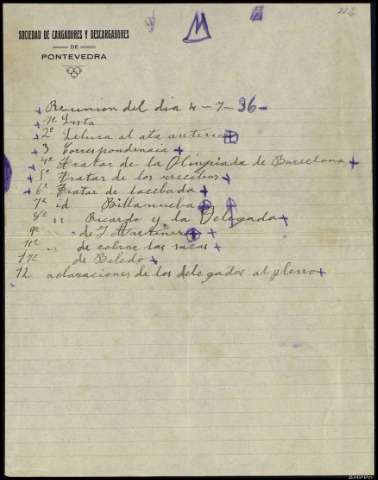 SOCIEDAD DE CARGADORES Y DESCARGADORES
DE
PONTEVEDRA
Reunion del dia 4-7-36-
1º Lista
2º Letura al ata anterior
3 Correspondencia
4º Tratar de la Olinpiada de Barcelona
5º Tratar de los recibos
6º Tratar de la cebada
7º id Billanueba
8º " Ricardo y la Delegada
9º " de J Martinez
10º " de cobrar las sacas
11º de Beledo
12 aclaraciones de los delegados al pleno